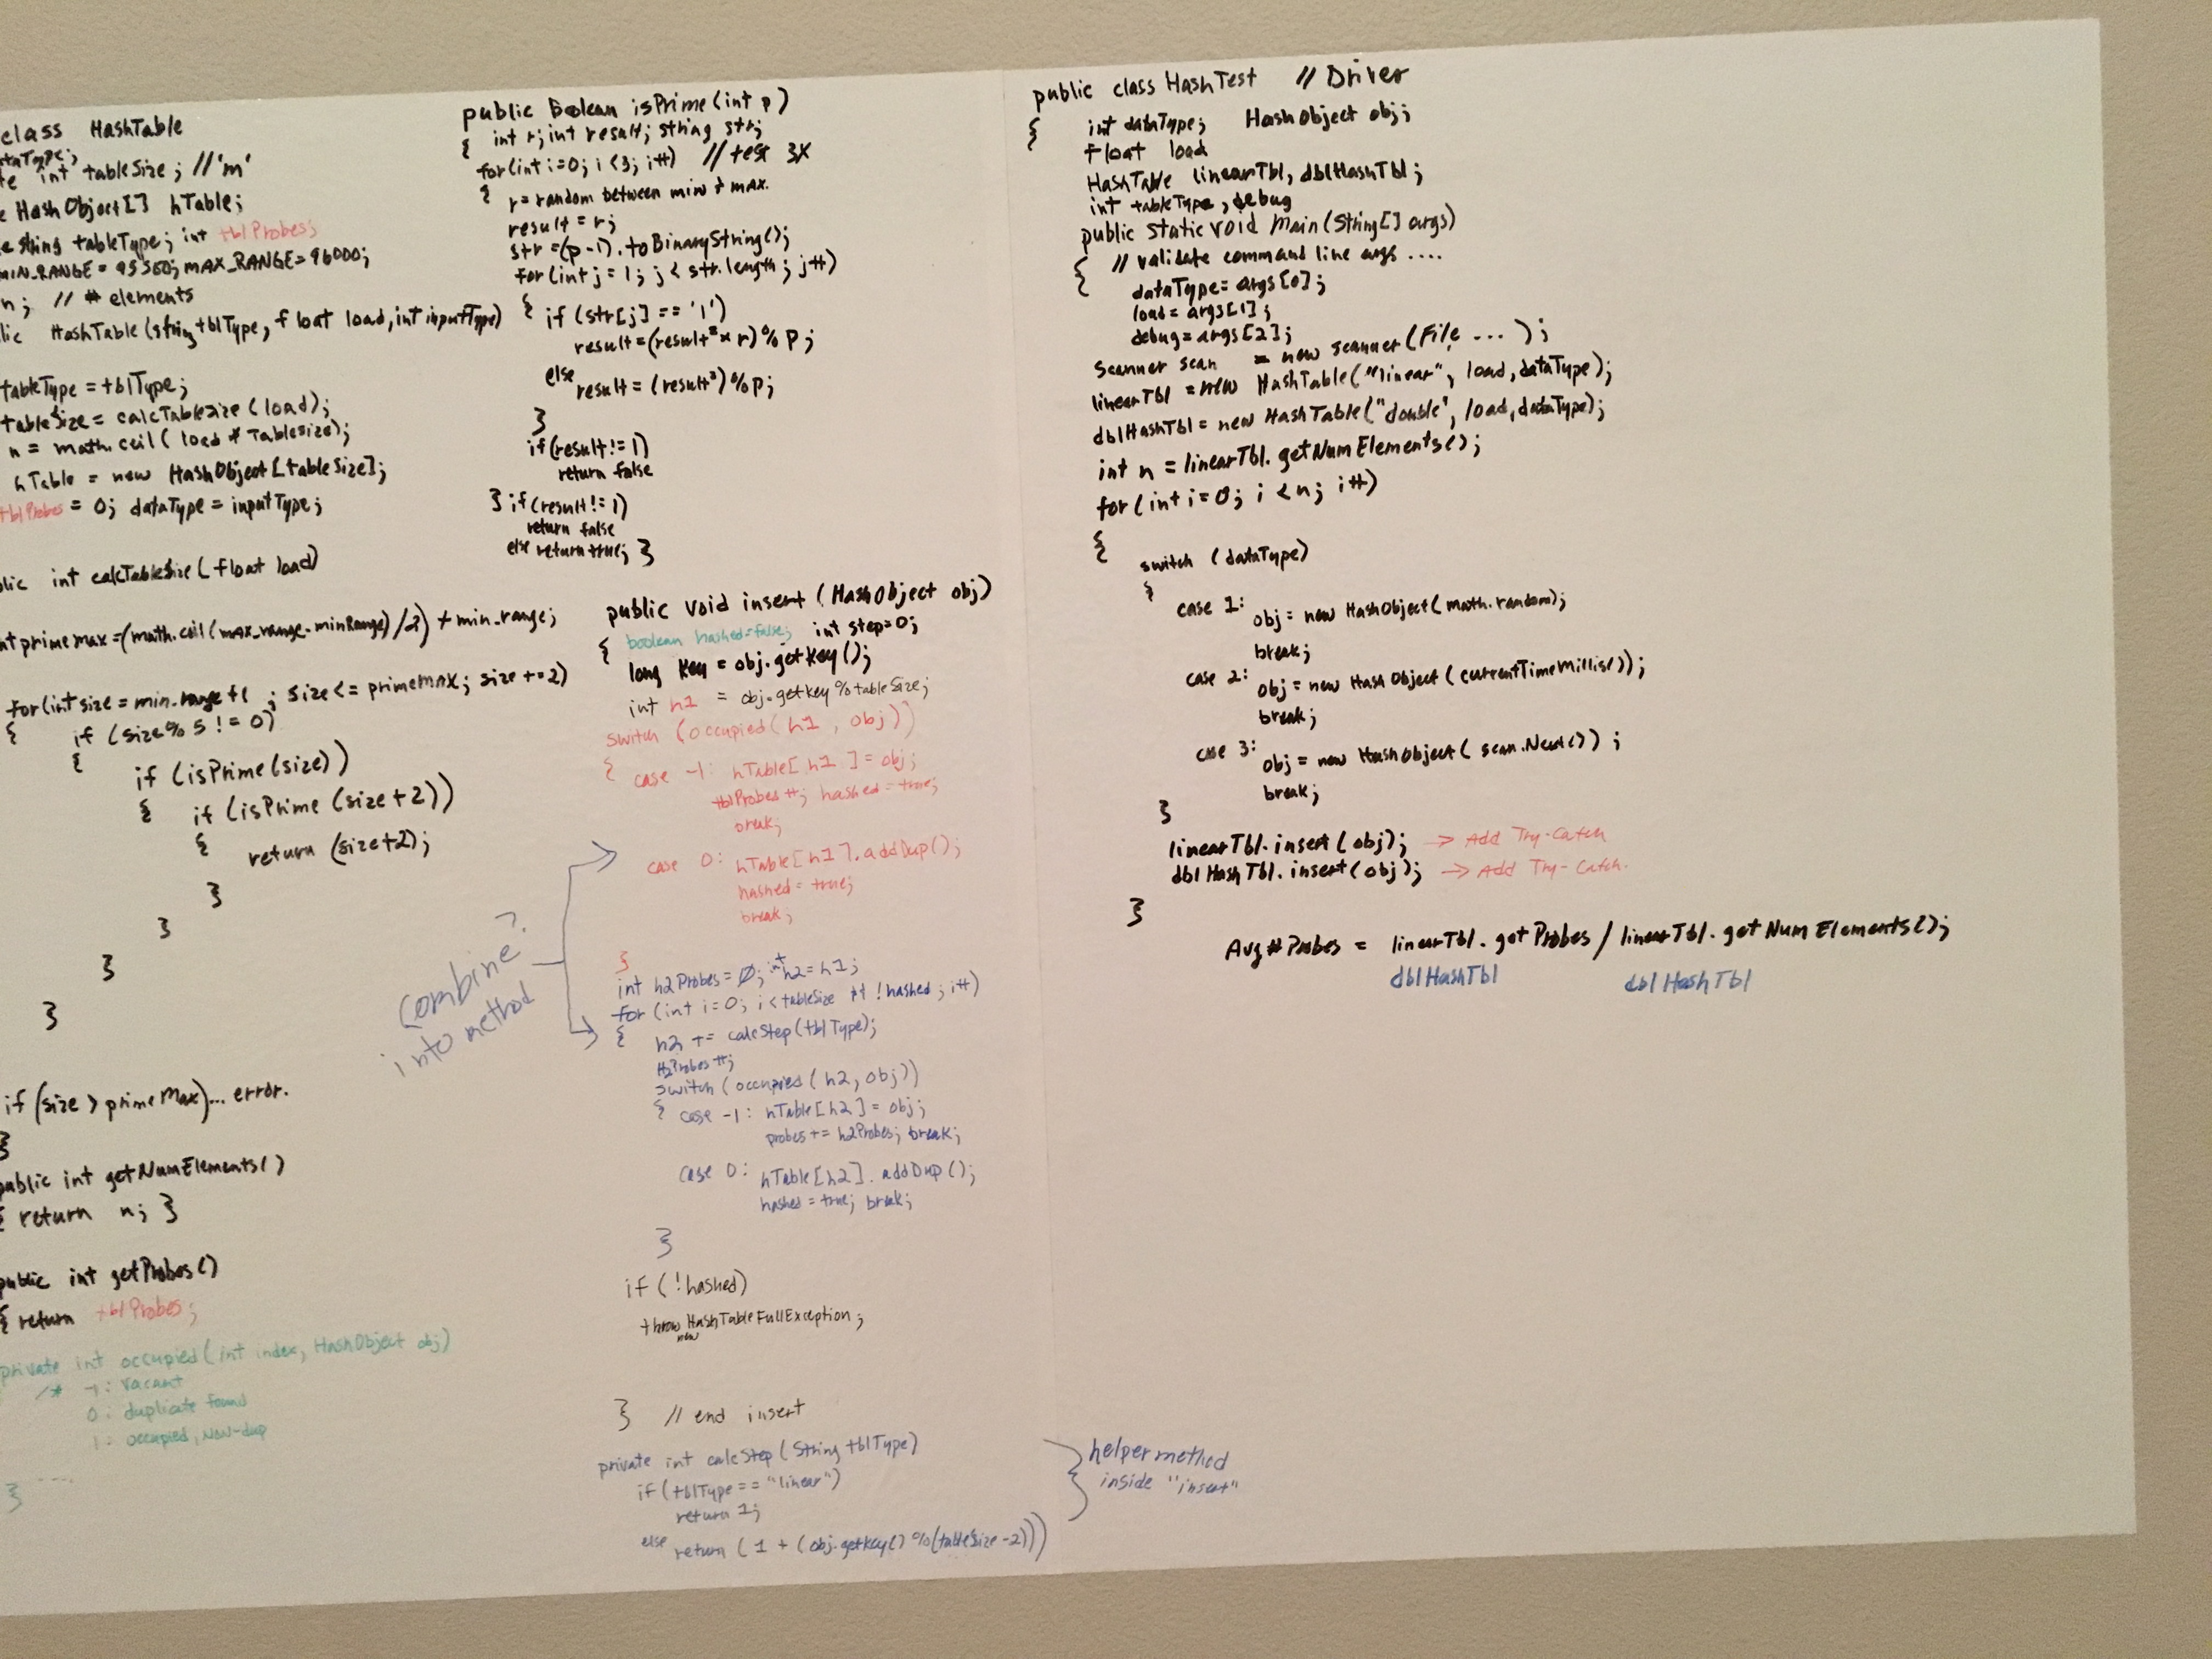 class HashTable
dataType;
te int tableSize; //'m'
e HashObject[] hTable;
e string tableType; int tblProbes;
MIN_RANGE = 95500; MAX_RANGE = 96000;
n; // # elements
lic HashTable(string tblType, float load, int inputType)
tableType = tblType;
tableSize = calcTableSize (load);
n = math.ceil( load * Tablesize);
hTable = new HashObject[tableSize];
tblProbes = 0; dataType = inputType;
blic int calcTableSize(float load)
nt primemax = (math.ceil(max_range-minRange)/2) + min_range;
for(int size = min_range+1 ; size <= primemax; size += 2)
{ if (size % 5 != 0)
{
if (isPrime(size))
{ if (isPrime (size+2))
{ return (size+2);
}
}
}
}
if (size > primeMax)... error.
}
public int getNumElements()
{ return n; }
public int getProbes()
{ return tblProbes;
private int occupied(int index, HashObject obj)
/* -1: vacant
0: duplicate found
1: occupied, non-dup
} ....
public Boolean isPrime(int p)
{ int r; int result; string str;
for(int i=0; i<3; i++) // test 3X
{ r = random between min + max.
result = r;
str = (p-1).toBinaryString();
for(int j=1; j < str.length; j++)
{ if (str[j] == '1')
result = (result² * r) % p;
else
result = (result²) % p;
}
if(result != 1)
return false
} if(result != 1)
return false
else return true; }
public void insert (HashObject obj)
{ boolean hashed=false; int step=0;
long key = obj.getKey();
int h1 = obj.getkey % tableSize;
switch (occupied(h1, obj))
{ case -1: hTable[h1] = obj;
tblProbes++; hashed = true;
break;
case 0: hTable[h1].addDup();
hashed = true;
break;
}
combine?
into method
int h2Probes = Ø; int h2=h1;
for(int i=0; i<tableSize && !hashed; i++)
{ h2 += calcStep(tblType);
H2Probes++;
switch (occupied(h2, obj))
{ case -1: hTable[h2] = obj;
probes += h2Probes; break;
case 0: hTable[h2].addDup();
hashed = true; break;
}
if (!hashed)
throw new HashTableFullException;
} // end insert
private int calcStep (String tblType)
if(tblType == "linear")
return 1;
else return (1 + (obj.getkey() % (tableSize-2)))
helper method
inside "insert"
public class HashTest // Driver
{ int dataType; HashObject obj;
float load
HashTable linearTbl, dblHashTbl;
int tableType, debug
public static void Main(String[] args)
{ // validate command line args ....
dataType = args[0];
load = args[1];
debug = args[2];
Scanner scan = new scanner(File ... );
linearTbl = new HashTable("linear", load, dataType);
dblHashTbl = new HashTable("double", load, dataType);
int n = linearTbl.getNumElements();
for(int i=0; i<n; i++)
{
switch (dataType)
{
case 1: obj = new HashObject(math.random);
break;
case 2: obj = new HashObject(currentTimeMillis());
break;
case 3: obj = new HashObject( scan.Next()) ;
break;
}
linearTbl.insert(obj); → Add Try-Catch
dblHashTbl.insert(obj); → Add Try-Catch.
}
Avg # Probes = linearTbl.getProbes / linearTbl.getNumElements();
dblHashTbl dblHashTbl